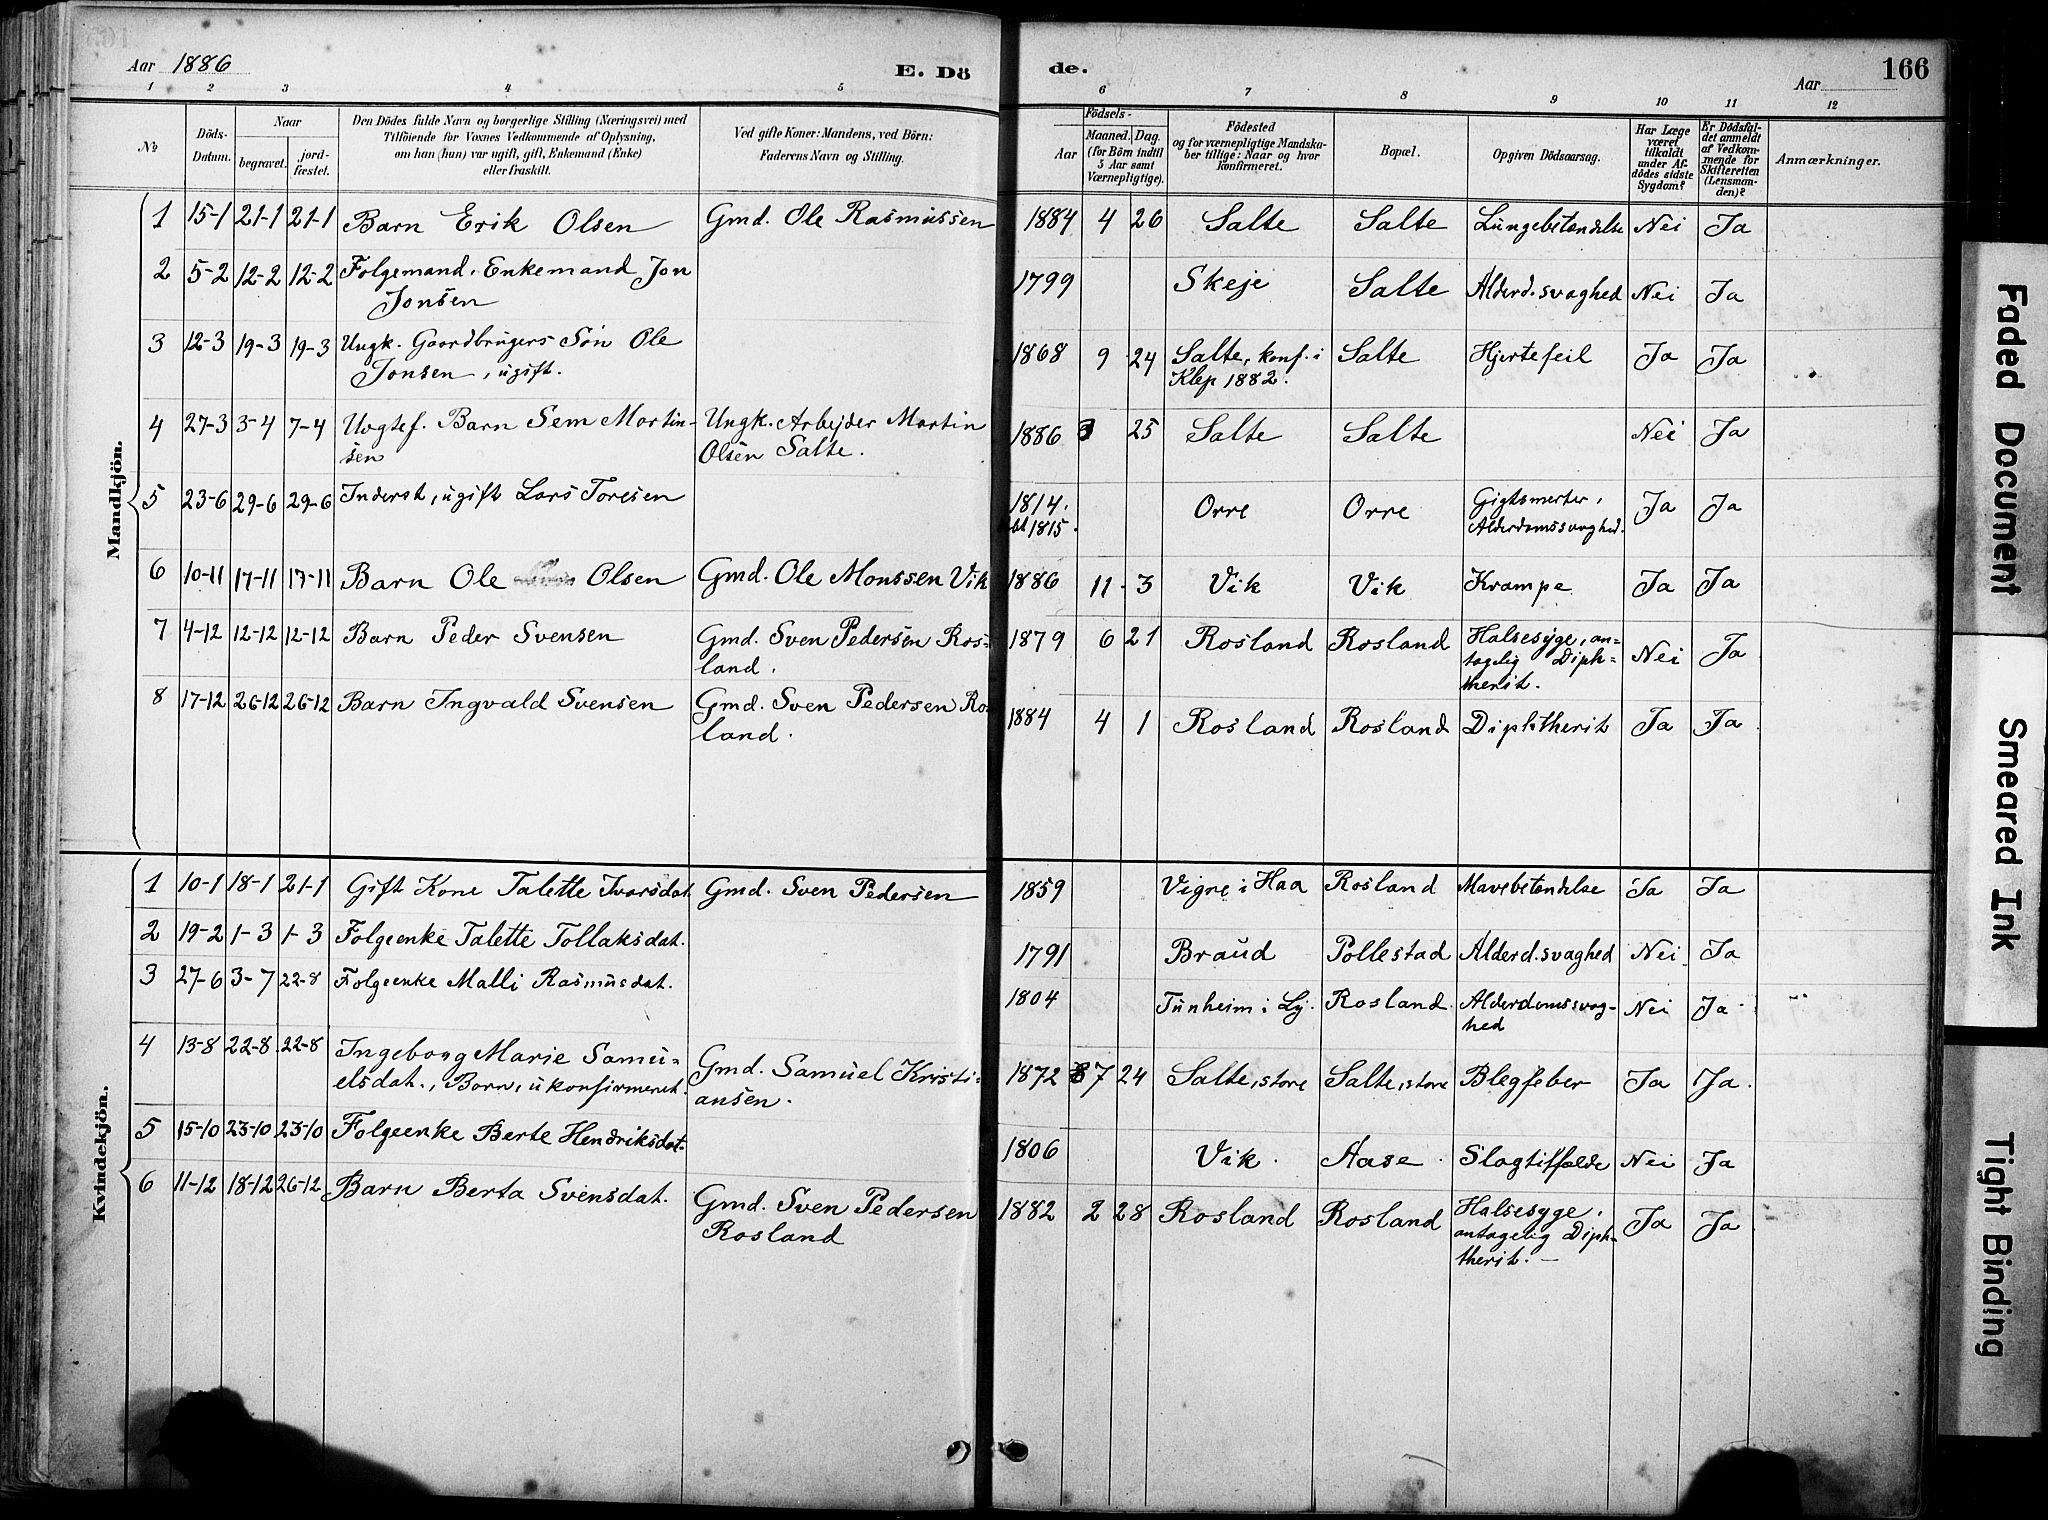 Aar 1886
E. Dö
de.
Aar
166
1 2 3 4 5 6 7 8 9 10 11 12
No
Döds-Datum.
Naar
begravet.
jord-fæstet.
Den Dödes fulde Navn og borgerlige Stilling (Næringsvei) med
Tilföiende for Voxnes Vedkommende af Oplysning,
om han (hun) var ugift, gift, Enkemand (Enke)
eller fraskilt.
Ved gifte Koner: Mandens, ved Börn:
Faderens Navn og Stilling.
Födsels-
Aar
Maaned. Dag.
(for Börn indtil
5 Aar samt
Værnepligtige).
Födested
og for værnepligtige Mandska-
ber tillige: Naar og hvor
konfirmeret.
Bopæl.
Opgiven Dödsaarsag.
Har Læge
været
tilkaldt
under Af-
dödes sidste
Sygdom?
Er Dödsfal-
det anmeldt
af Vedkom-
mende for
Skifteretten
(Lensman-
den)?
Anmærkninger.
Mandkjön.
1 15-1 21-1 21-1 Barn Erik Olsen Gmd. Ole Rasmussen 1884 4 26 Salte Salte Lungebetændelse Nei Ja
2 5-2 12-2 12-2 Folgemand, Enkemand Jon 1799 Skeje Salte Alderd.svaghed Nei Ja
Jonsen
3 12-3 19-3 19-3 Ungk. Gaardbrugers Søn Ole 1868 9 24 Salte, konf. i Salte Hjertefeil Ja Ja
Jonsen, ugift. Klep 1882.
4 27-3 3-4 7-4 Uægtef. Barn Sem Martin- Ungk. Arbejder Martin 1886 3 25 Salte Salte Nei Ja
sen Olsen Salte.
5 23-6 29-6 29-6 Inderst, ugift Lars Toresen 1814. Orre Orre Gigtsmerter, Ja Ja
1815. Alderdomssvaghed.
6 10-11 17-11 17-11 Barn Ole Olsen Gmd. Ole Monssen Vik 1886 11 3 Vik Vik Krampe Ja Ja
7 4-12 12-12 12-12 Barn Peder Svensen Gmd. Sven Pedersen Ros- 1879 6 21 Rosland Rosland Halsesyge, an- Nei Ja
land. tagelig Diph-
therit.
8 17-12 26-12 26-12 Barn Ingvald Svensen Gmd. Sven Pedersen Ros 1884 4 1 Rosland Rosland Diphtherit Ja Ja
land.
Kvindekjön.
1 10-1 18-1 21-1 Gift Kone Talette Ivarsdat. Gmd. Sven Pedersen 1859 Vigre i Haa Rosland Mavebetændelse Ja Ja
2 19-2 1-3 1-3 Folgeenke Talette Tollaksdat. 1791 Braud Pollestad Alderd.svaghed Nei Ja
3 27-6 3-7 22-8 Folgeenke Malli Rasmusdat. 1804 Tunheim i Ly. Rosland. Alderdomssvag- Nei Ja
hed
4 13-8 22-8 22-8 Ingeborg Marie Samu- Gmd. Samuel Kristi- 1872 7 24 Salte, store Salte, store Blegfeber Ja Ja.
elsdat., Barn, ukonfirmeret. ansen.
5 15-10 23-10 23-10 Folgeenke Berte Hendriksdat. 1806 Vik. Aase. Slagtilfælde Nei Ja
6 11-12 18-12 26-12 Barn Berta Svensdat. Gmd. Sven Pedersen 1882 2 28 Rosland Rosland Halsesyge, Ja Ja
Rosland antagelig Diph-
therit.
Faded Document
Smeared Ink
Tight Binding